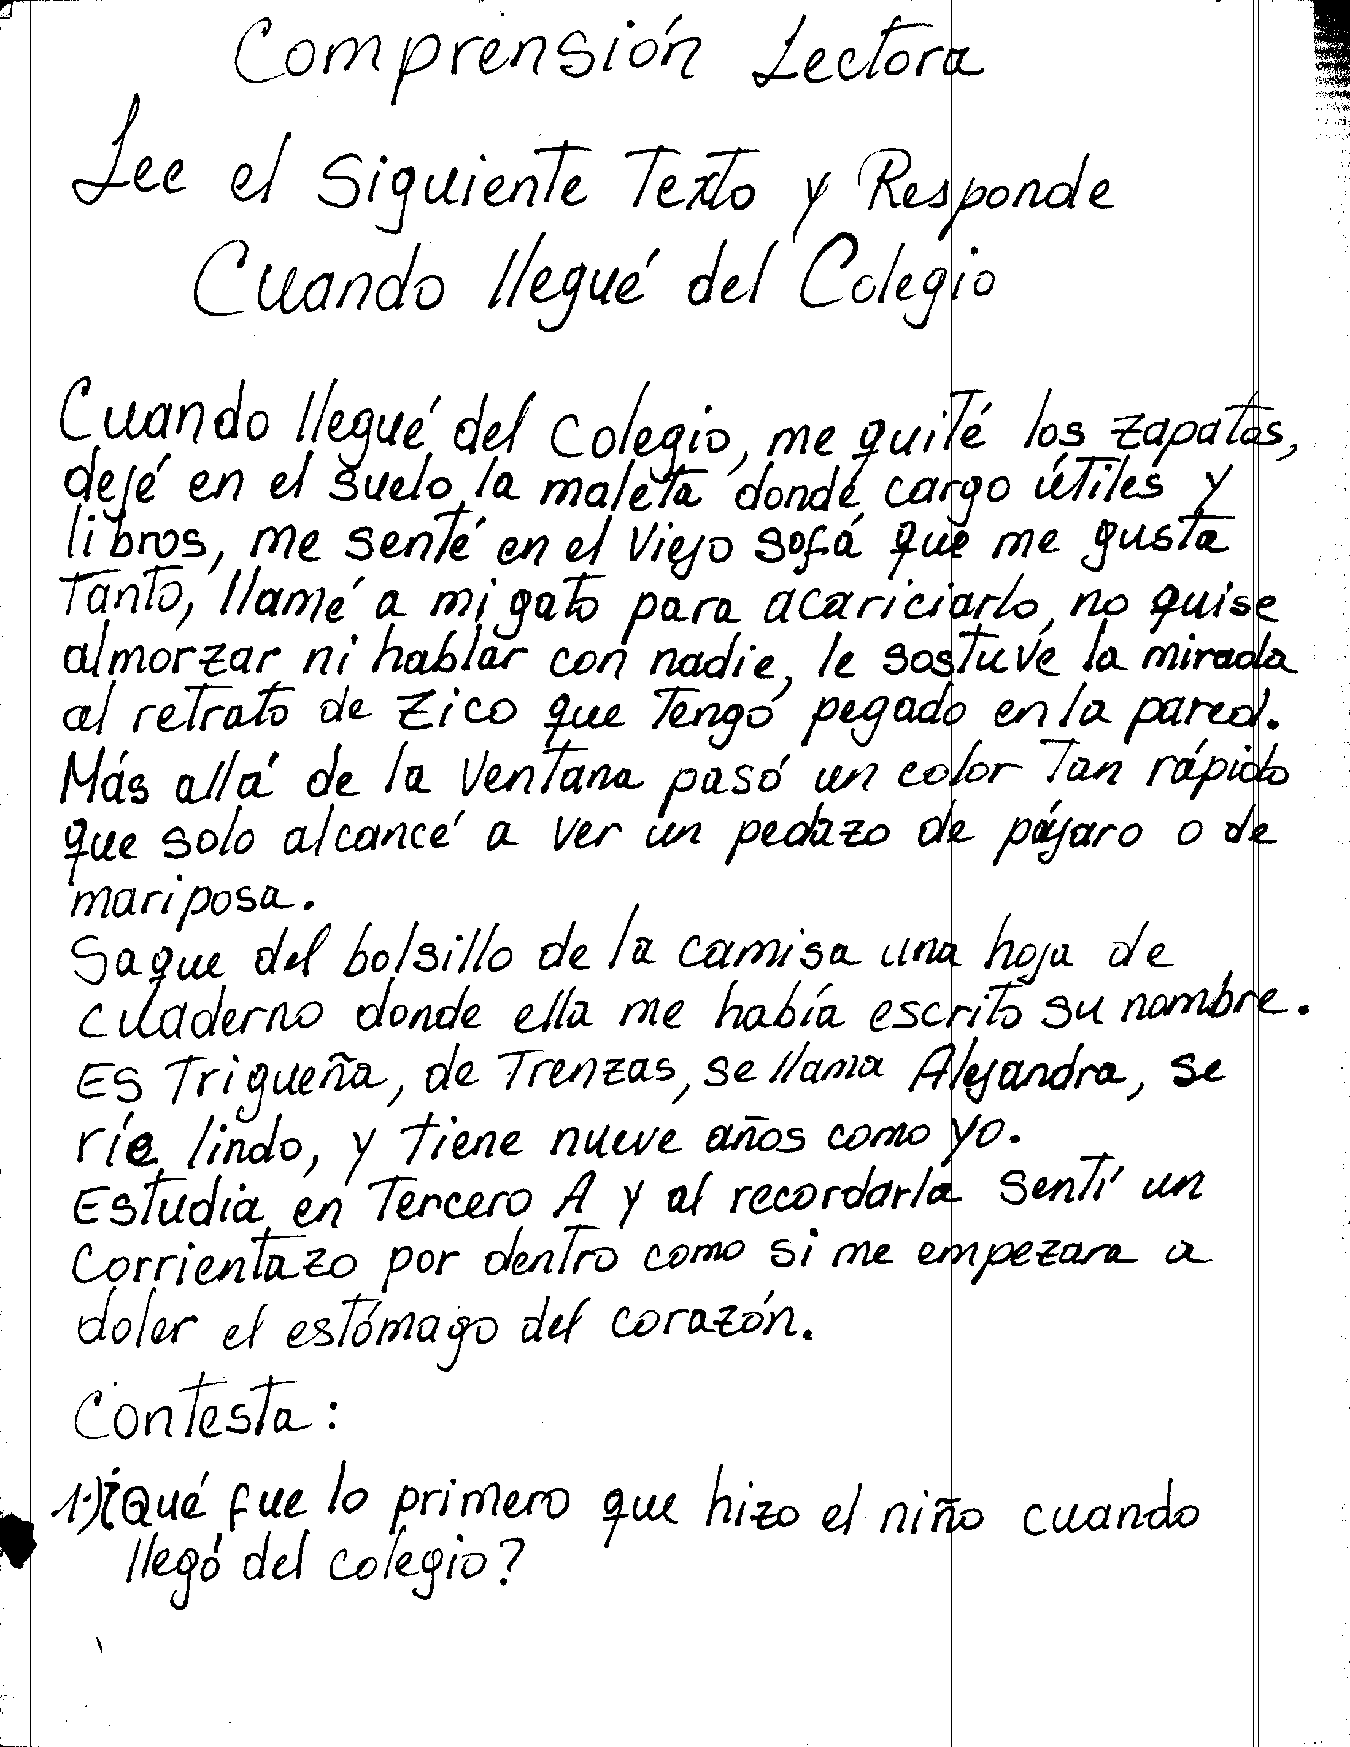 Comprensión Lectora
Lee el Siguiente Texto y Responde
Cuando llegué del Colegio
Cuando llegué del Colegio, me quité los zapatos,
dejé en el suelo la maleta donde cargo útiles y
libros, me senté en el viejo sofá que me gusta
Tanto, llamé a mi gato para acariciarlo, no quise
almorzar ni hablar con nadie, le sostuve la mirada
al retrato de Zico que Tengo pegado en la pared.
Más allá de la Ventana pasó un color Tan rápido
que solo alcancé a ver un pedazo de pájaro o de
mariposa.
Saque del bolsillo de la camisa una hoja de
cuaderno donde ella me había escrito su nombre.
Es Trigueña, de Trenzas, se llama Alejandra, se
ríe lindo, y tiene nueve años como yo.
Estudia en Tercero A y al recordarla sentí un
Corrientazo por dentro como si me empezara a
doler el estómago del corazón.
Contesta:
1.) ¿Qué fue lo primero que hizo el niño cuando
llegó del colegio?